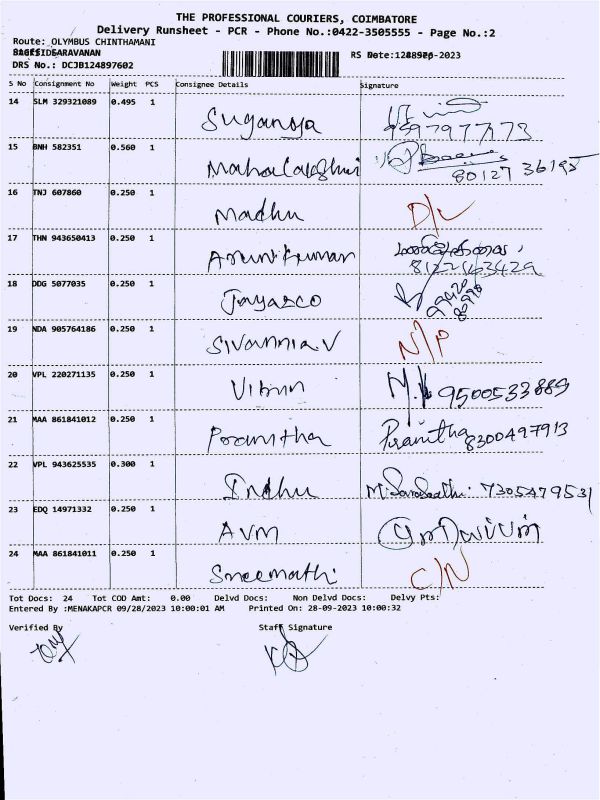 THE PROFESSIONAL COURIERS, COIMBATORE
Delivery Runsheet - PCR - Phone No.:0422-3505555 - Page No.:2
Route: OLYMBUS CHINTHAMANI
RS Date: -2023
DRS No.: DCJB124897602
S No Consignment No Weight PCS Consignee Details Signature
14 SLM 329321089 0.495 1 Suganya 9597977173
15 BNH 582351 0.560 1 Mahalakshmi 80127 36195
16 TNJ 607860 0.250 1 Madhu D/L
17 THN 943650413 0.250 1 Arunkumar 8122163429
18 DDG 5077035 0.250 1 Jayasco
19 NDA 905764186 0.250 1 Sivannia.V N/P
20 VPL 220271135 0.250 1 Vibin 9500533889
21 MAA 861841012 0.250 1 Pranitha Pranitha 8300497913
22 VPL 943625535 0.300 1 Indhu 7305479531
23 EDQ 14971332 0.250 1 AVM
24 MAA 861841011 0.250 1 Sreemathi C/N
Tot Docs: 24 Tot COD Amt: 0.00 Delvd Docs: Non Delvd Docs: Delvy Pts:
Entered By :MENAKAPCR 09/28/2023 10:00:01 AM Printed On: 28-09-2023 10:00:32
Verified By Staff Signature